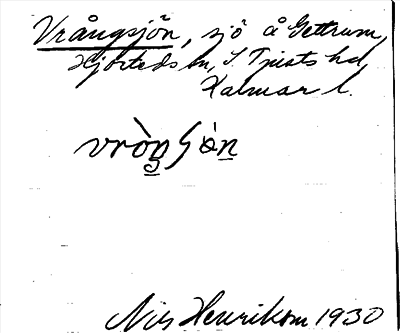 Vrångsjön, sjö å Gettrum,
Hjorteds sn, S. Tjusts hd,
Kalmar l.
vròŋʃòn
Nils Henrikson 1930